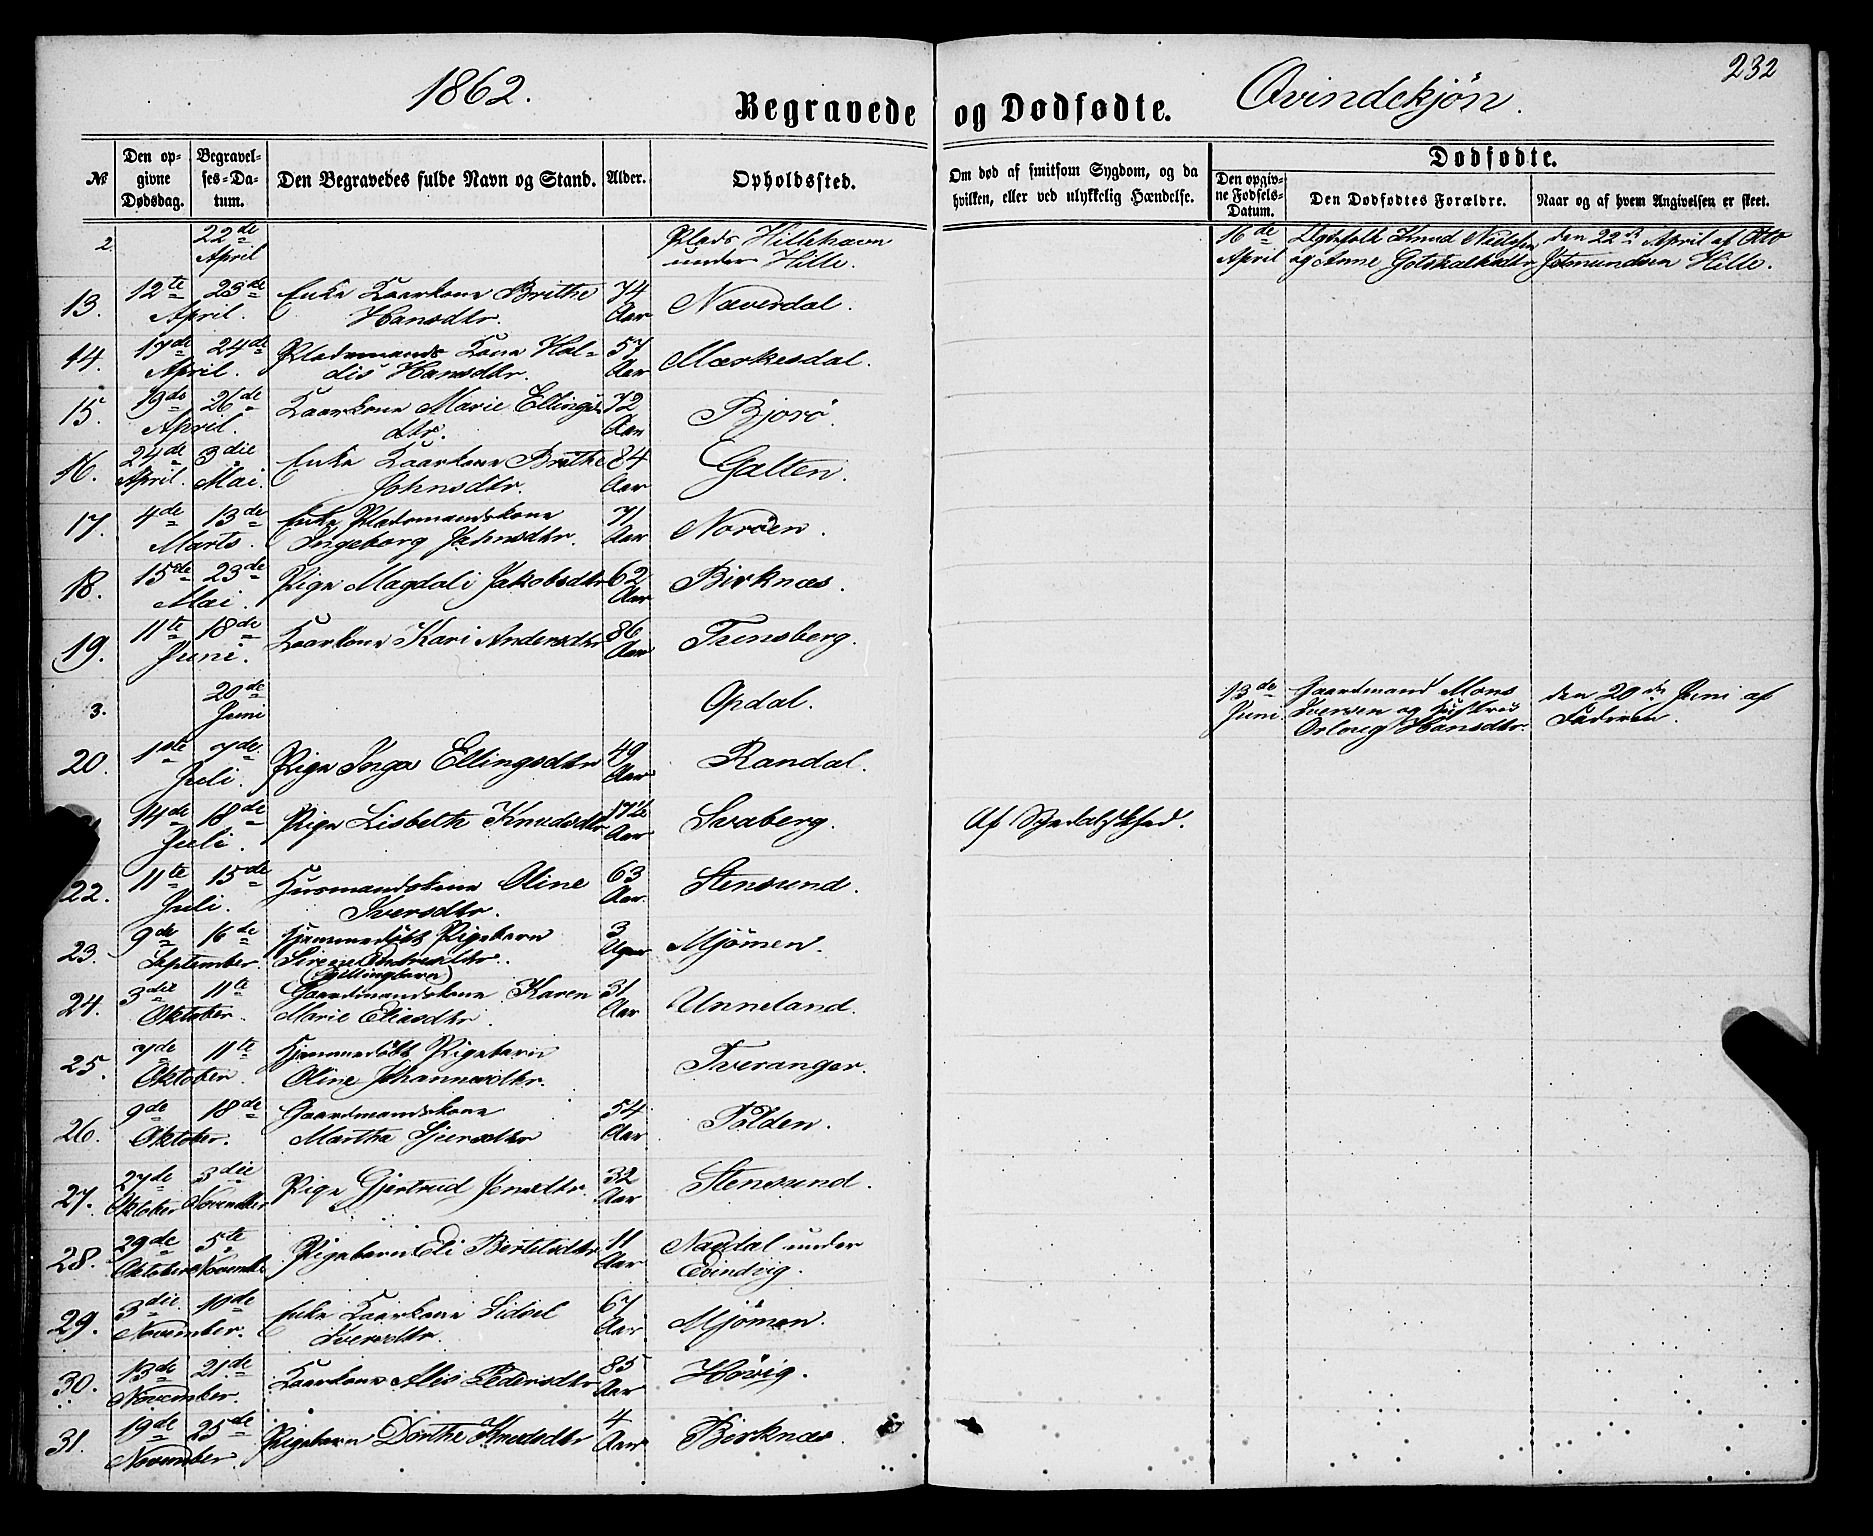 232
1862.
Begravede og Dødfødte.
Qvindekjøn.
№
Den op-
givne
Dødsdag.
Begravel-
ses-Da-
tum.
Den Begravedes fulde Navn og Stand.
Alder.
Opholdssted.
Om død af smitsom Sygdom, og da
hvilken, eller ved ulykkelig Hændelse.
Dødfødte.
Den opgiv-
ne Fødsels-
Datum.
Den Dødfødtes Forældre.
Naar og af hvem Angivelsen er skeet.
2 22de April Plads Hillehavn under Hille. 16de April Knud Nielsen og Anne den 22de April af Hille.
13. 12te 23de April. Enke Kaarkone Brithe Hansdtr. 74 Aar Næverdal.
14. 17de 24de April. Pladsmands Kone Hal-
dis Hansdtr. 57 Aar Mærkesdal.
15. 19de 26de April. Kaarkone Marie Ellings
dtr. 72 Aar Bjorö.
16. 24de April. 3die Mai. Enke Kaarkone Brithe Johnsdtr. 84 Aar Galten.
17. 4de 13de Marts. Enke Pladsmandskone
Ingeborg Johnsdtr. 71 Aar Noröen.
18. 15de 23de Mai. Pige Magdali Jakobsdtr 62 Aar Birknæs.
19. 11te 18de Juni. Kaarkone Kari Andersdtr 86 Aar Tunsberg.
3. 20de Juni Opdal. 13de Juni Gaardmand Mons Iversen og Hustru Hansdtr. den 20de Juni af Faderen.
20. 1ste 7de Juli. Pige Inga Ellingsdtr 49 Aar Randal.
14de 18de Juli. Pige Lisbeth Knudsdtr 17½ Aar Svaberg. Af Spedalskhed.
22. 11te 15de Juli. Husmandskone Oline
Iversdtr. 63 Aar. Stensund.
23. 9de 16de September. Hjemmedöbt Pigebarn
Sirene
(Tvillingbarn) 3 Uger Mjömen.
24. 3die 11te Oktober. Gaardmandskone Karen
Marie Eliasdtr. 31 Aar Unneland.
25. 7de 11te Oktober. Hjemmedöbt Pigebarn
Oline Johannesdtr. Tveranger.
26. 9de 18de Oktober. Gaardmandskone
Martha Sjursdtr 54 Aar Tolden.
27. 27de Oktober 3die November Pige Gjertrud Jensdtr. 32 Aar Stensund.
28. 29de Oktober 5te November Pigebarn Eli Bertelsdtr 11 Aar Nagdal under
Evindvig.
29. 3die 10de November. Enke Kaarkone Sidsel
Iversdtr. 67 Aar Mjömen.
30. 13de 21de November. Kaarkone Alis Pedersdtr 85 Aar Hövig.
31. 19de 25de November. Pigebarn Dorthe Knudsdtr 4 Aar Birknæs.